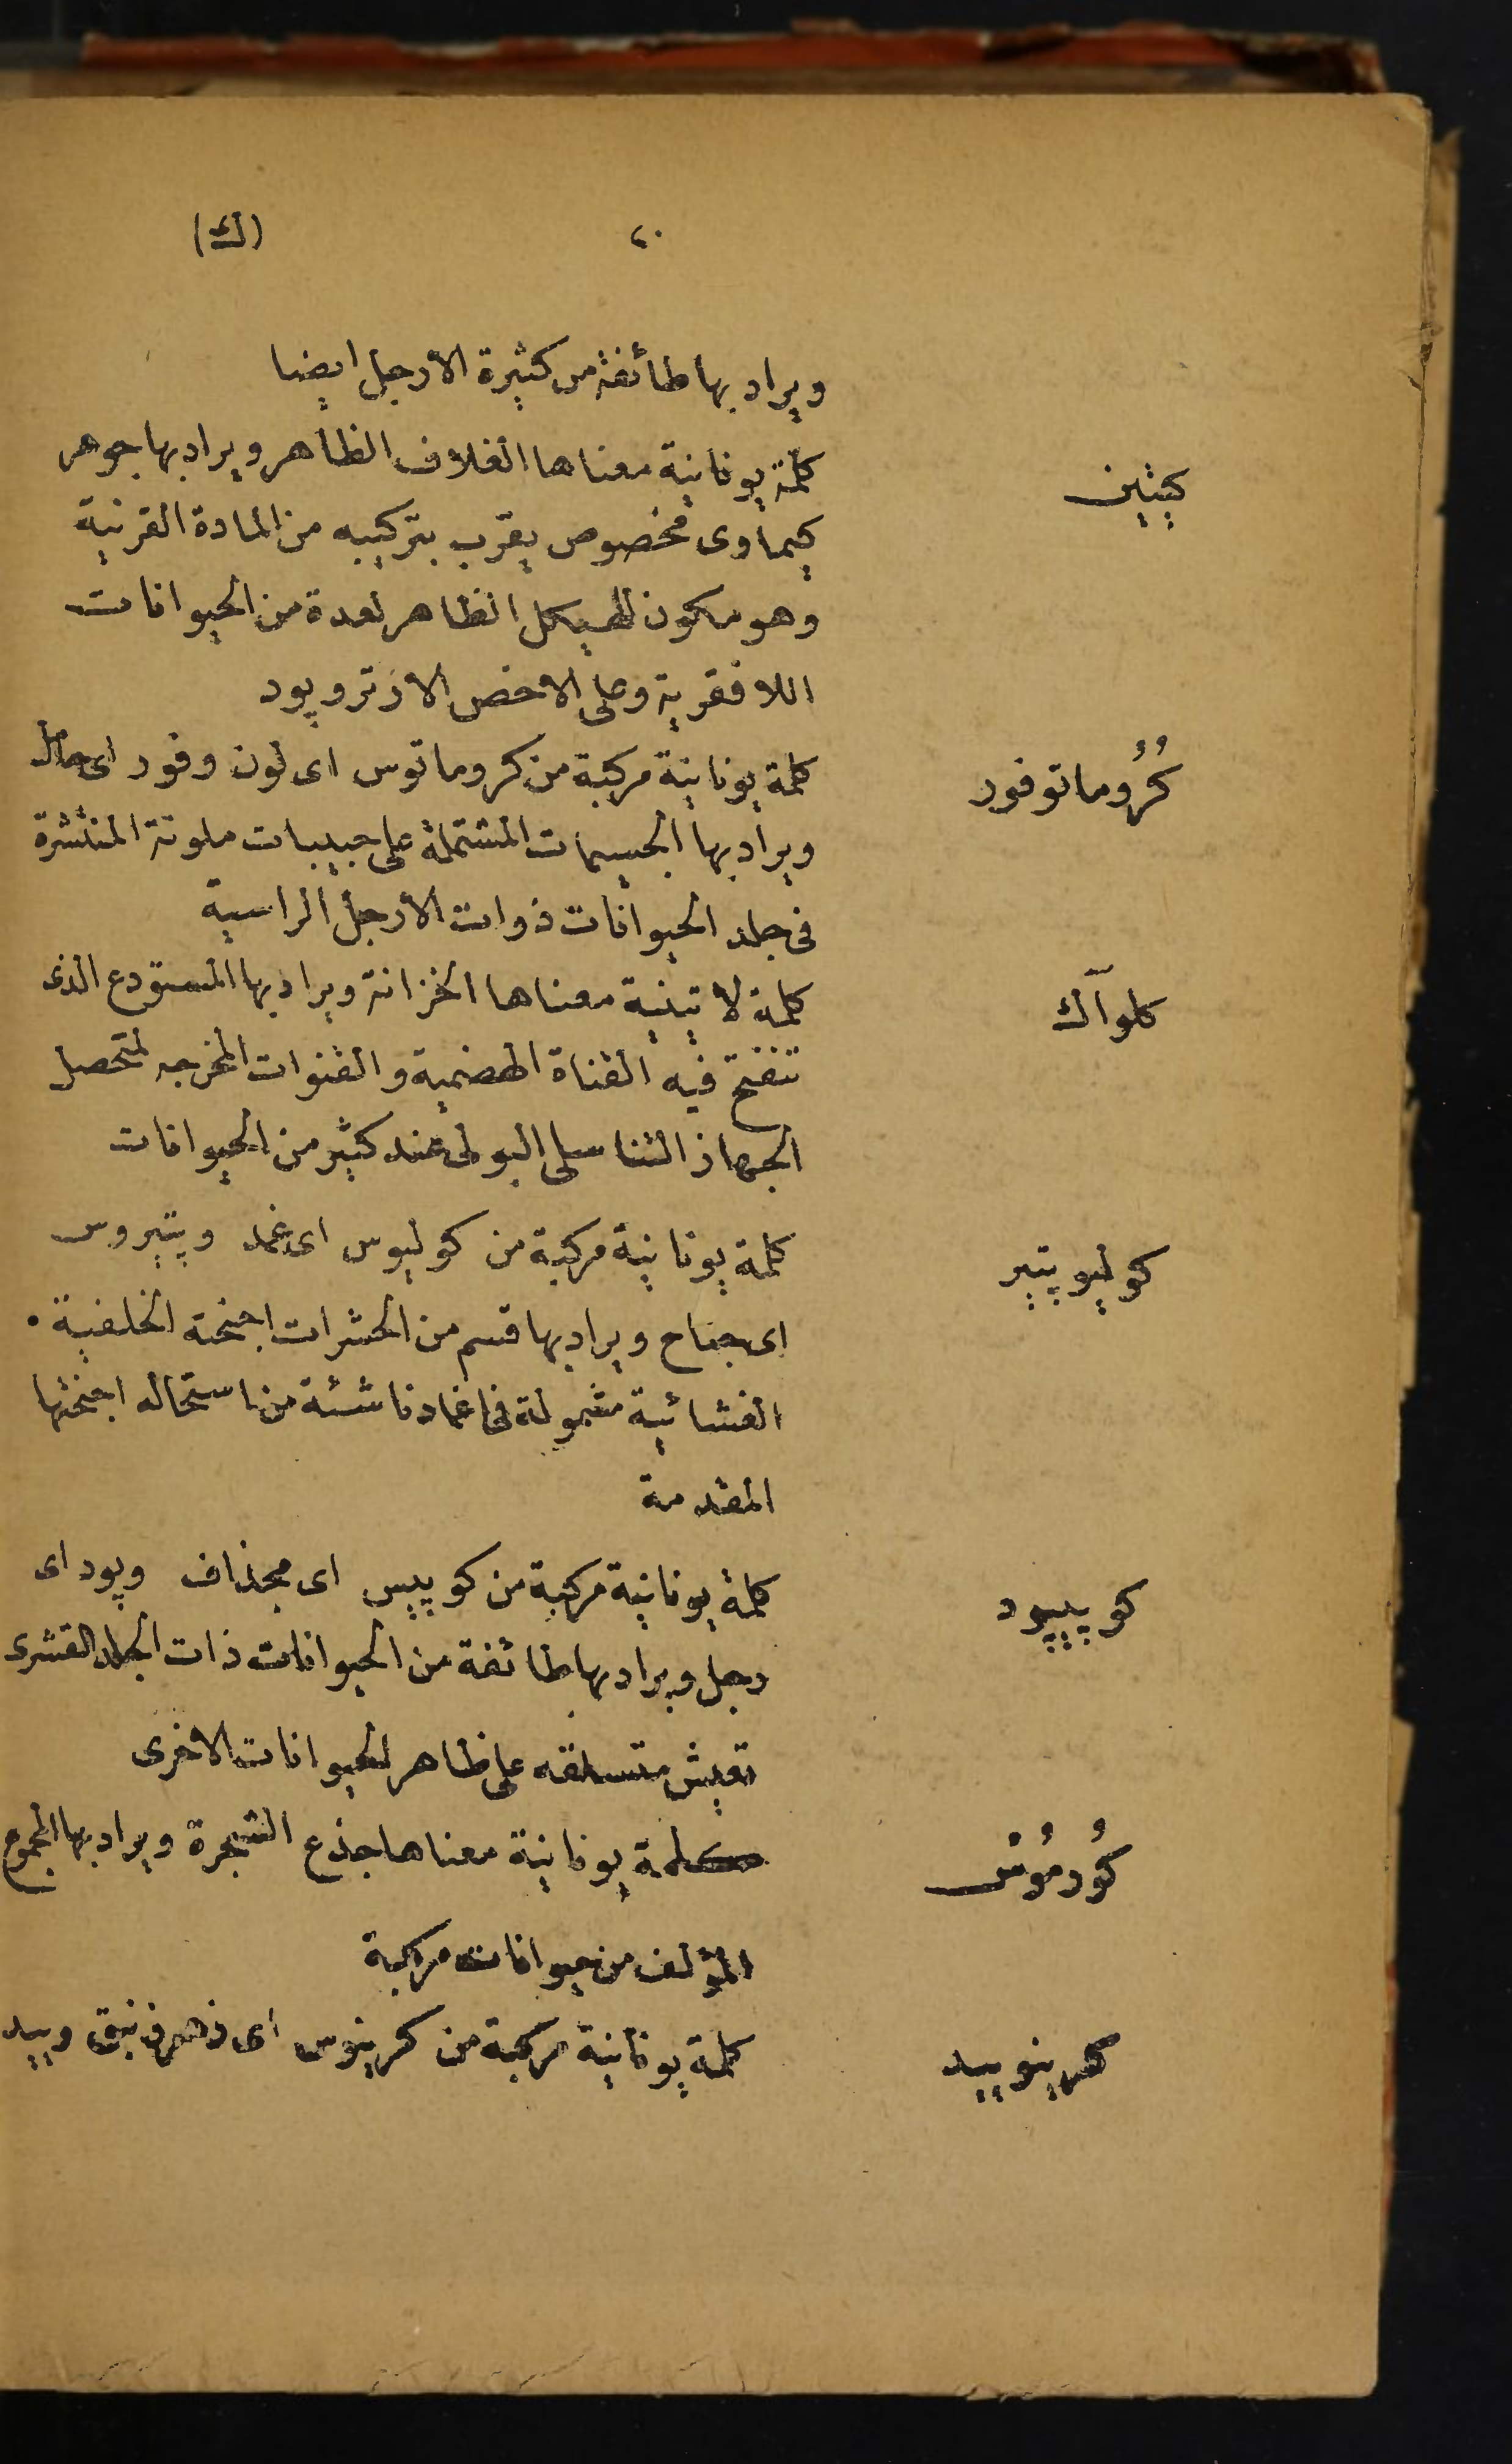 ٢٠ (ك)
ويراد بها طائفة من كثيرة الأرجل ايضا
كيتين كلمة يونانية معناها الغلاف الظاهر ويراد بها جوهر
كيماوى مخصوص يقرب بتركيبه من المادة القرنية
وهو مكون للهيكل الظاهر لعدة من الحيوانات
اللافقرية وعلى الاخص الارتروپود
كُرُوماتوفور كلمة يونانية مركبة من كروماتوس اى لون وفور اى حامل
ويراد بها الجسيمات المشتملة على حبيبات ملونة المنتشرة
فى جلد الحيوانات ذوات الأرجل الراسية
كلوآك كلمة لاتينية معناها الخزانة ويراد بها المستودع الذى
تنفتح فيه القناة الهضمية والقنوات المخرجه لمتحصل
الجهاز التناسلى البولى عند كثير من الحيوانات
كوليوپتير كلمة يونانية مركبة من كوليوس اى غمد وپتيروس
اى جناح ويراد بها قسم من الحشرات اجنحته الخلفية
الغشائية مشمولة فى اغماد ناشئة من استحاله اجنحتها
المقدمة
كوپيپود كلمة يونانية مركبة من كوپيس اى مجذاف وپود اى
رجل ويراد بها طائفة من الحيوانات ذات الجلد القشرى
تعيش متسلقه على ظاهر الحيوانات الاخرى
كُورمُوسْ كلمة يونانية معناها جذع الشجرة ويراد بها المجموع
المؤلف من حيوانات مركبة
كرينوييد كلمة يونانية مركبة من كرينوس اى زهر زنبق وييد